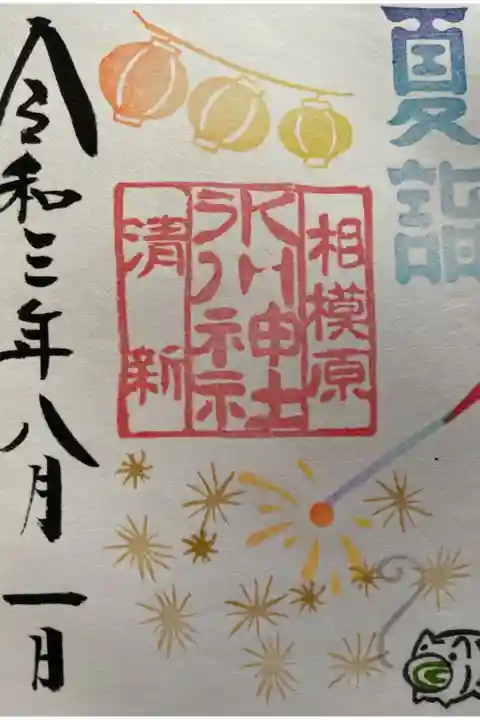 夏詣
相模原
氷川神社
清新
令和三年八月一日